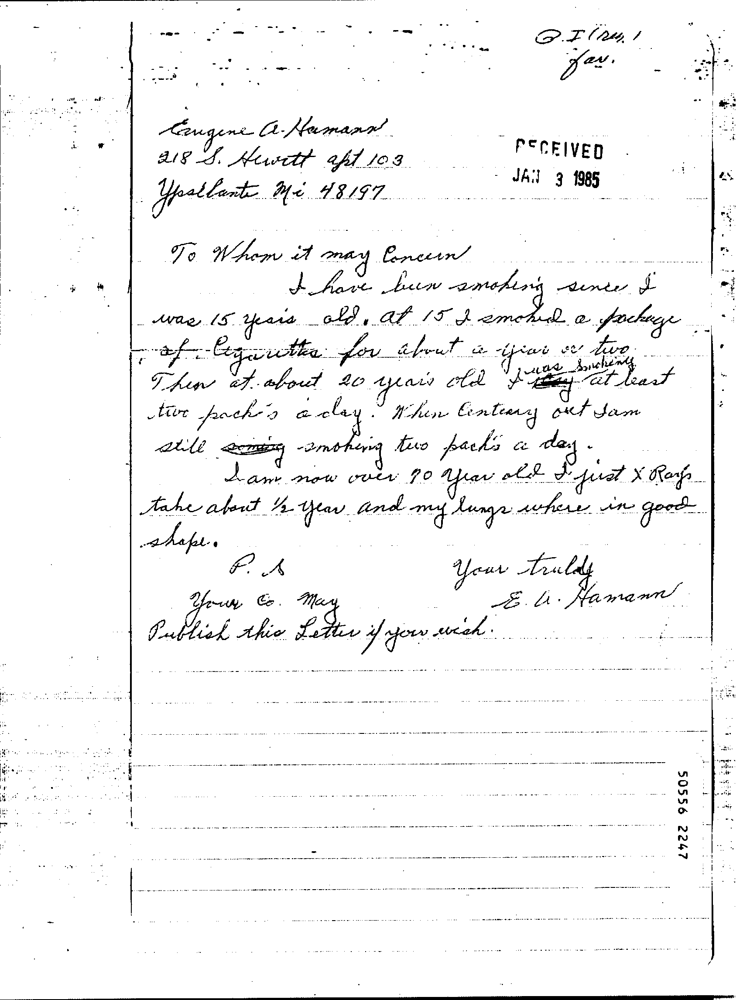 fav.
Eugene A. Hamann
218 S. Hewitt apt 103
Ypsellante Mi 48197
RECEIVED
JAN 3 1985
To Whom it may Concern
I have been smoking since I
was 15 years old. at 15 I smoked a package
of Cigarettes for about a year or two.
Then at about 20 years old I was Smoking at least
two pack's a day. When Centeary out I am
still smoking two pack's a day.
I am now over 70 year old I just X Rays
take about 1/2 year and my lungs where in good
shape.
P. S
Your truldy
Your Co. May
E. A. Hamann
Publish this Letter if you wish.
50556 2247